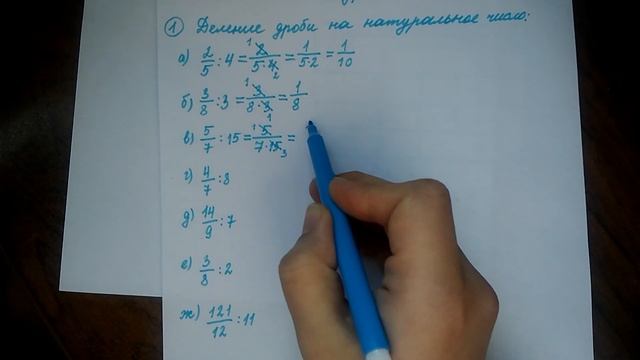 1 Деление дроби на натуральное число:
а) 2/5 : 4 = 2/5·4 = 1/5·2 = 1/10
б) 3/8 : 3 = 3/8·3 = 1/8
в) 5/7 : 15 = 5/7·15 =
г) 4/7 : 8
д) 14/9 : 7
е) 3/8 : 2
ж) 121/12 : 11